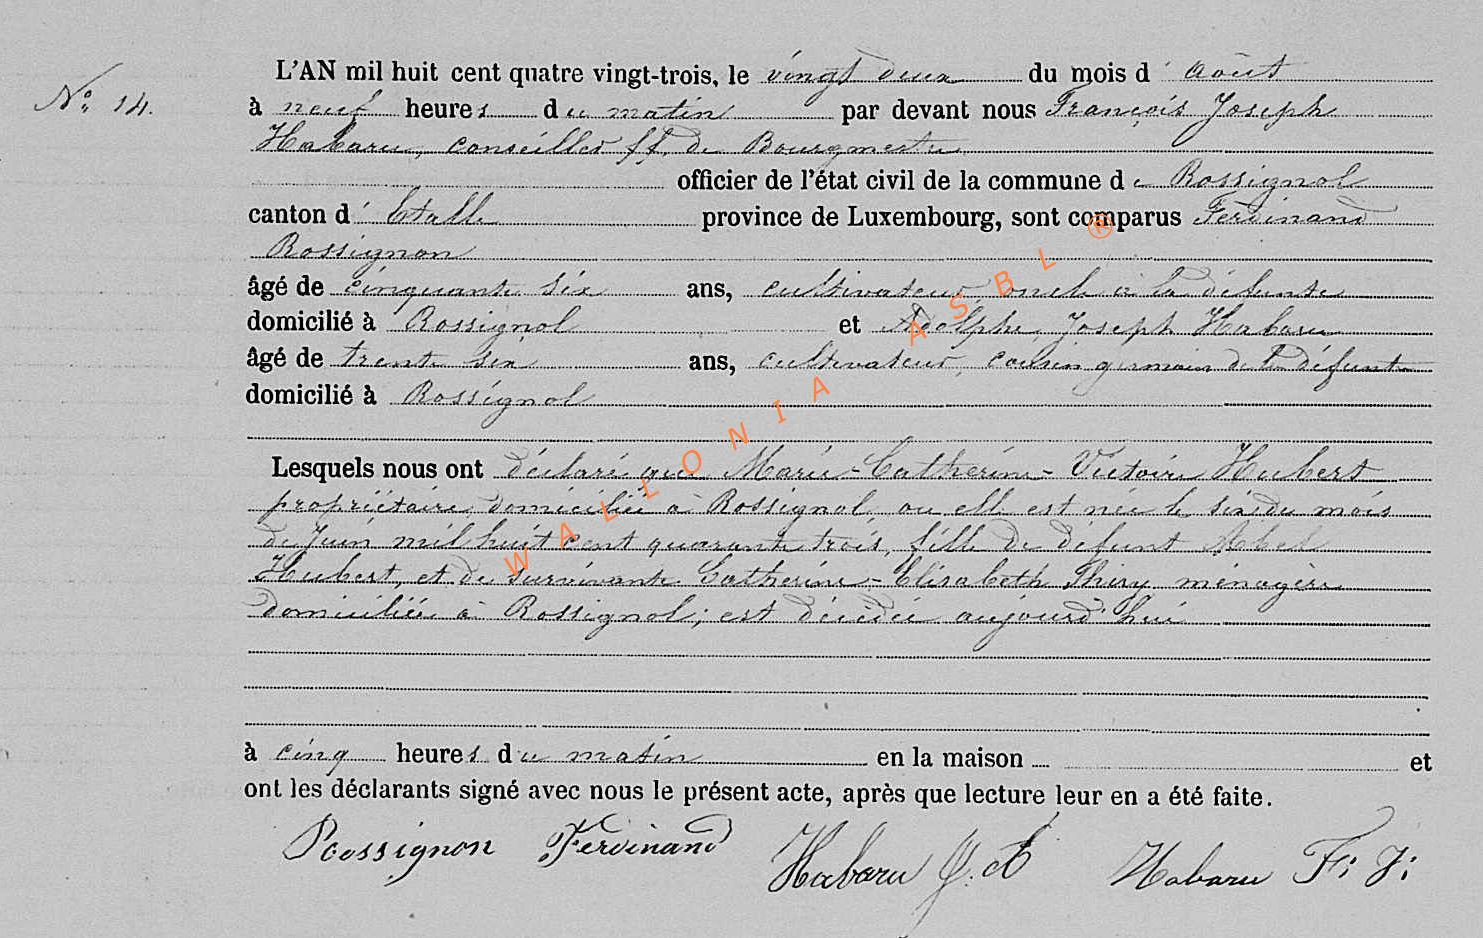 L'AN mil huit cent quatre vingt-trois, le vingt deux du mois d'août
No. 14.
à neuf heures du matin par devant nous François Joseph
Habaru, conseiller ff. de Bourgmestre
officier de l'état civil de la commune de Rossignol
canton d'Etalle province de Luxembourg, sont comparus Ferdinand
Rossignon
âgé de cinquante six ans, cultivateur, oncle à la défunte
domicilié à Rossignol et Adolphe Joseph Habaru
âgé de trente six ans, cultivateur, cousin germain de la défunte
domicilié à Rossignol
Lesquels nous ont déclaré que Marie-Catherine-Victoire Hubert
propriétaire domiciliée à Rossignol, où elle est née le six du mois
de Juin mil huit cent quarante trois, fille de défunt Abel
Hubert, et de survivante Catherine-Elisabeth Thiry ménagère
domiciliée à Rossignol; est décédée aujourd'hui
à cinq heures du matin en la maison et
ont les déclarants signé avec nous le présent acte, après que lecture leur en a été faite.
Rossignon Ferdinand Habaru J. A Habaru F. J.
WALLONIA ASBL ®